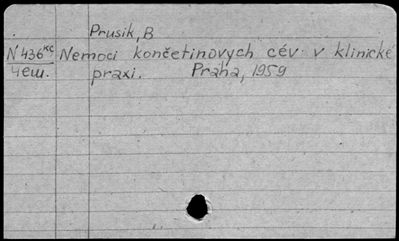 Prusik, B
N436кс Nemoci končetinovych cév v klinické
чеш. praxi. Praha, 1959